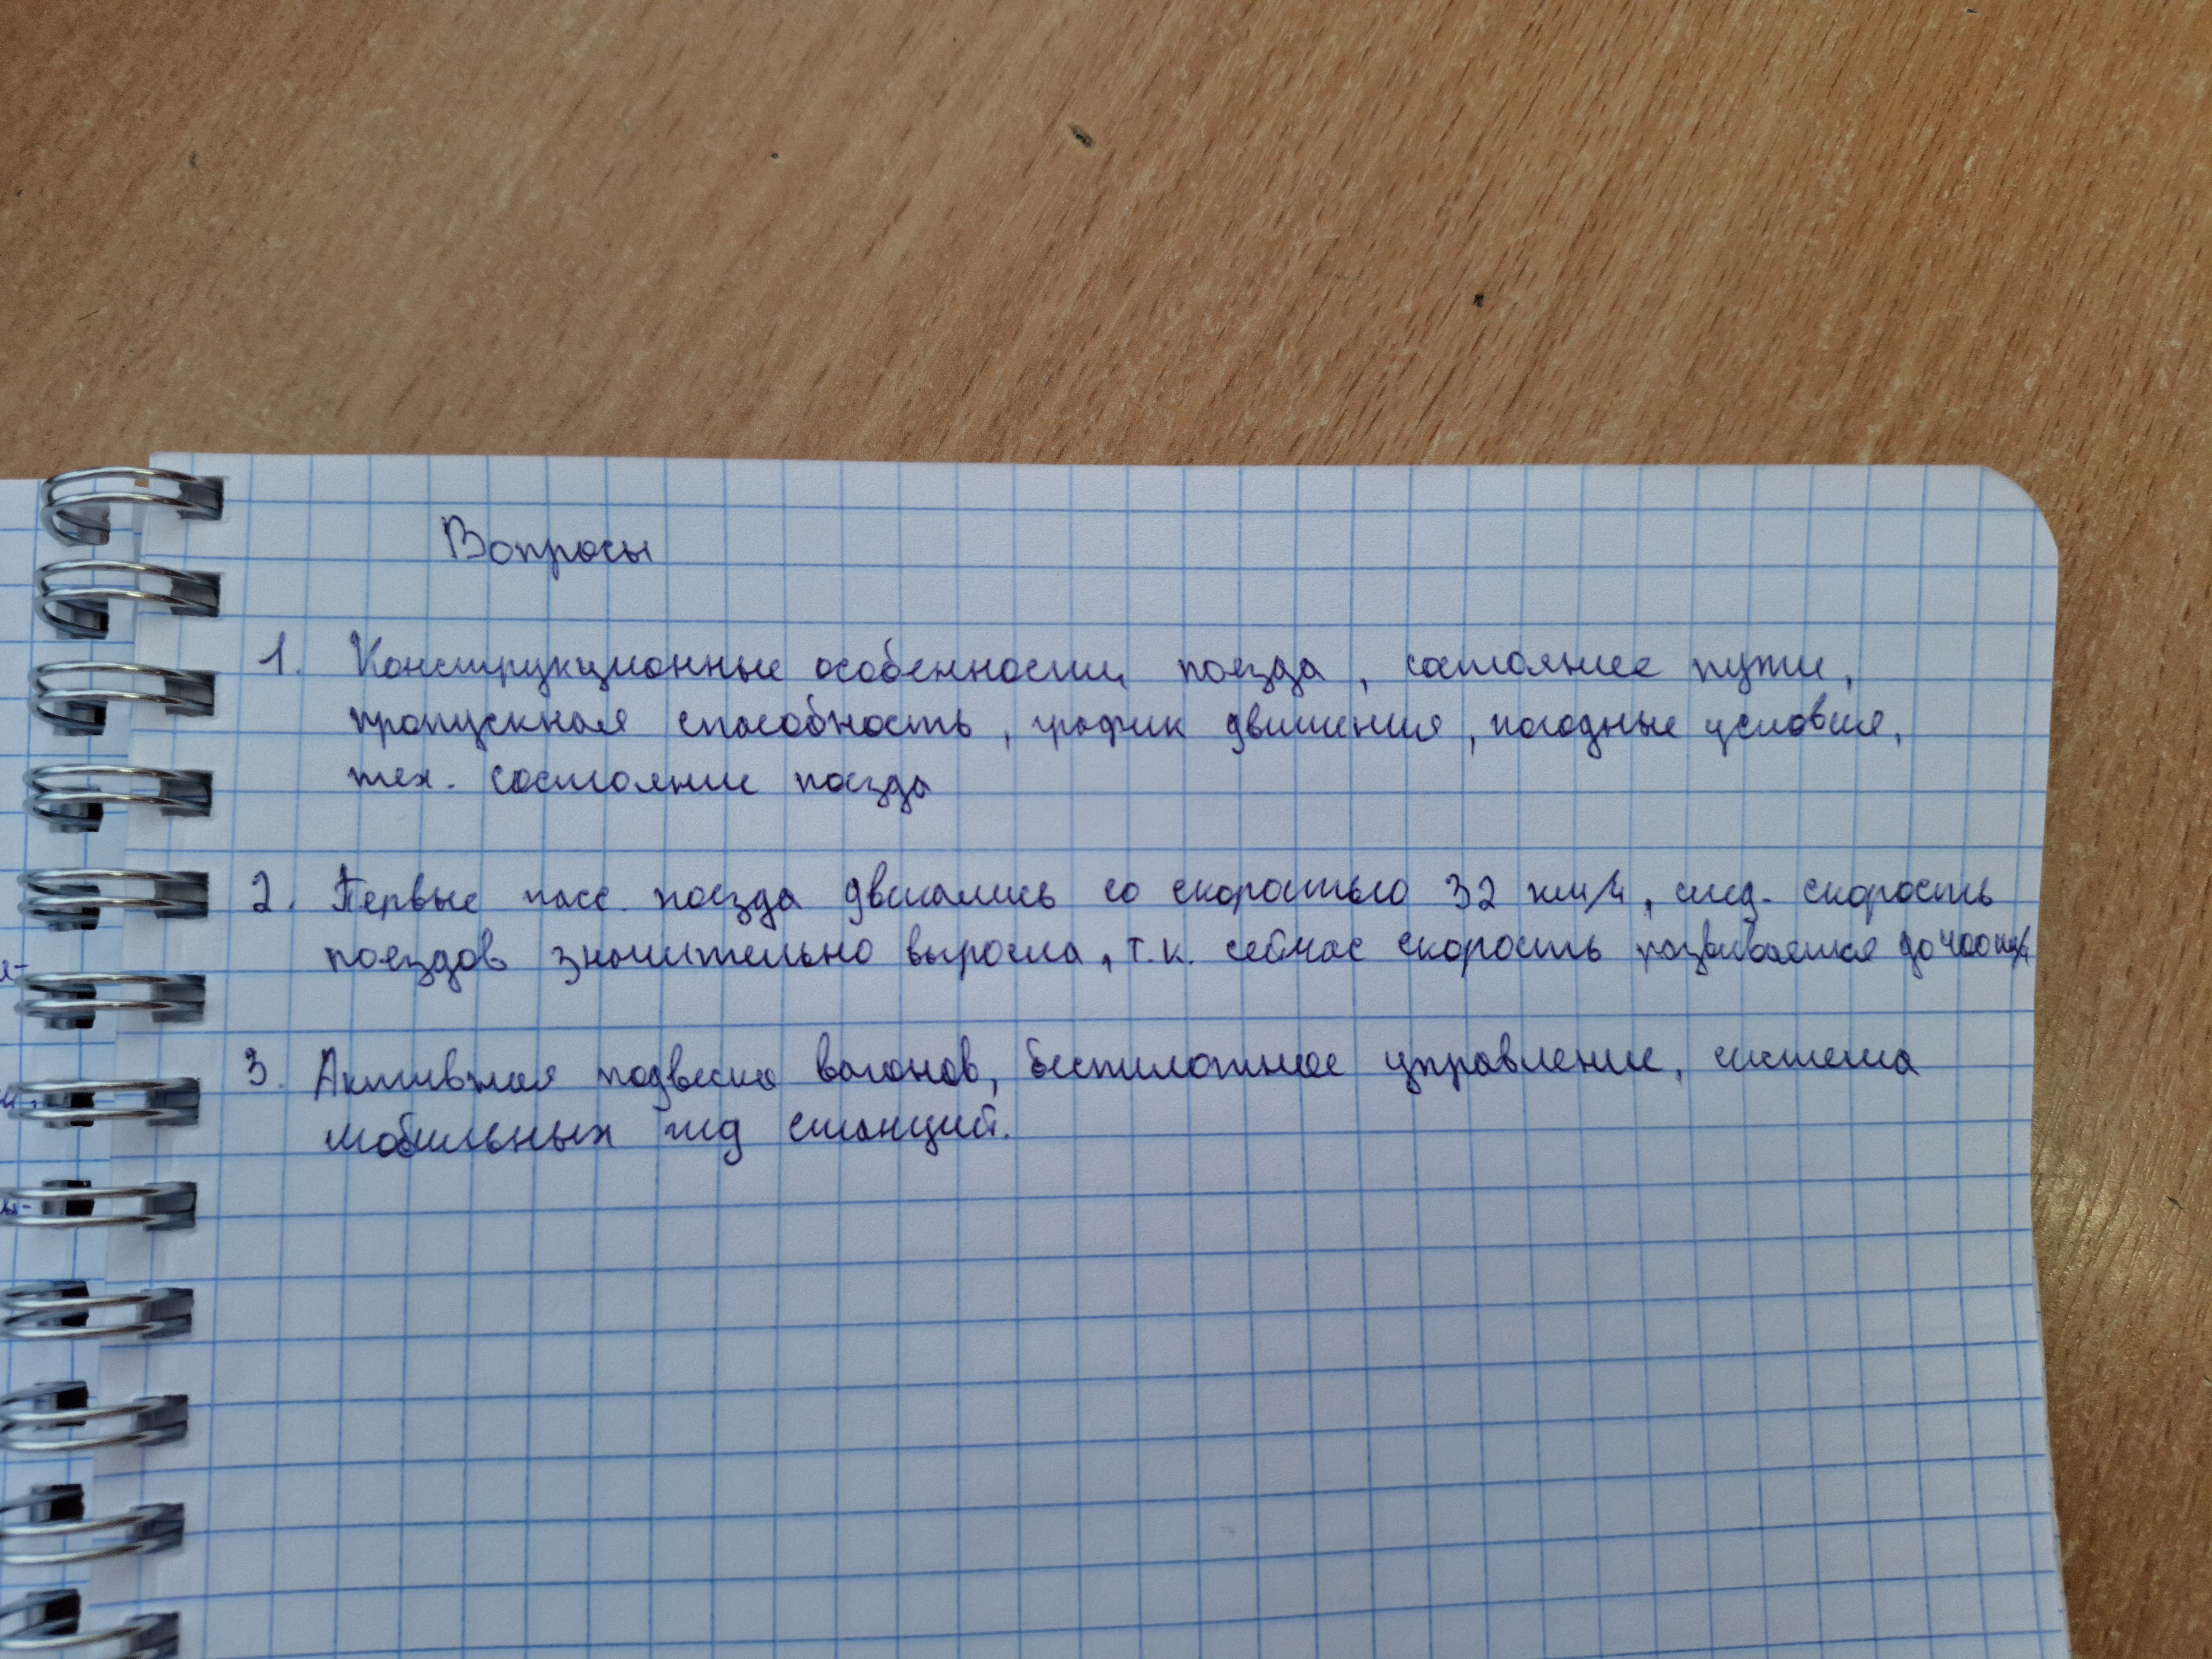 Вопросы
1. Конструкционные особенности поезда, состояние пути,
пропускная способность, график движения, погодные условия,
тех. состояние поезда
2. Первые пасс. поезда двигались со скоростью 32 км/ч, след. скорость
поездов значительно выросла, т.к. сейчас скорость развивается до 400 км/ч
3. Активная подвеска вагонов, беспилотное управление, система
мобильных жд станций.